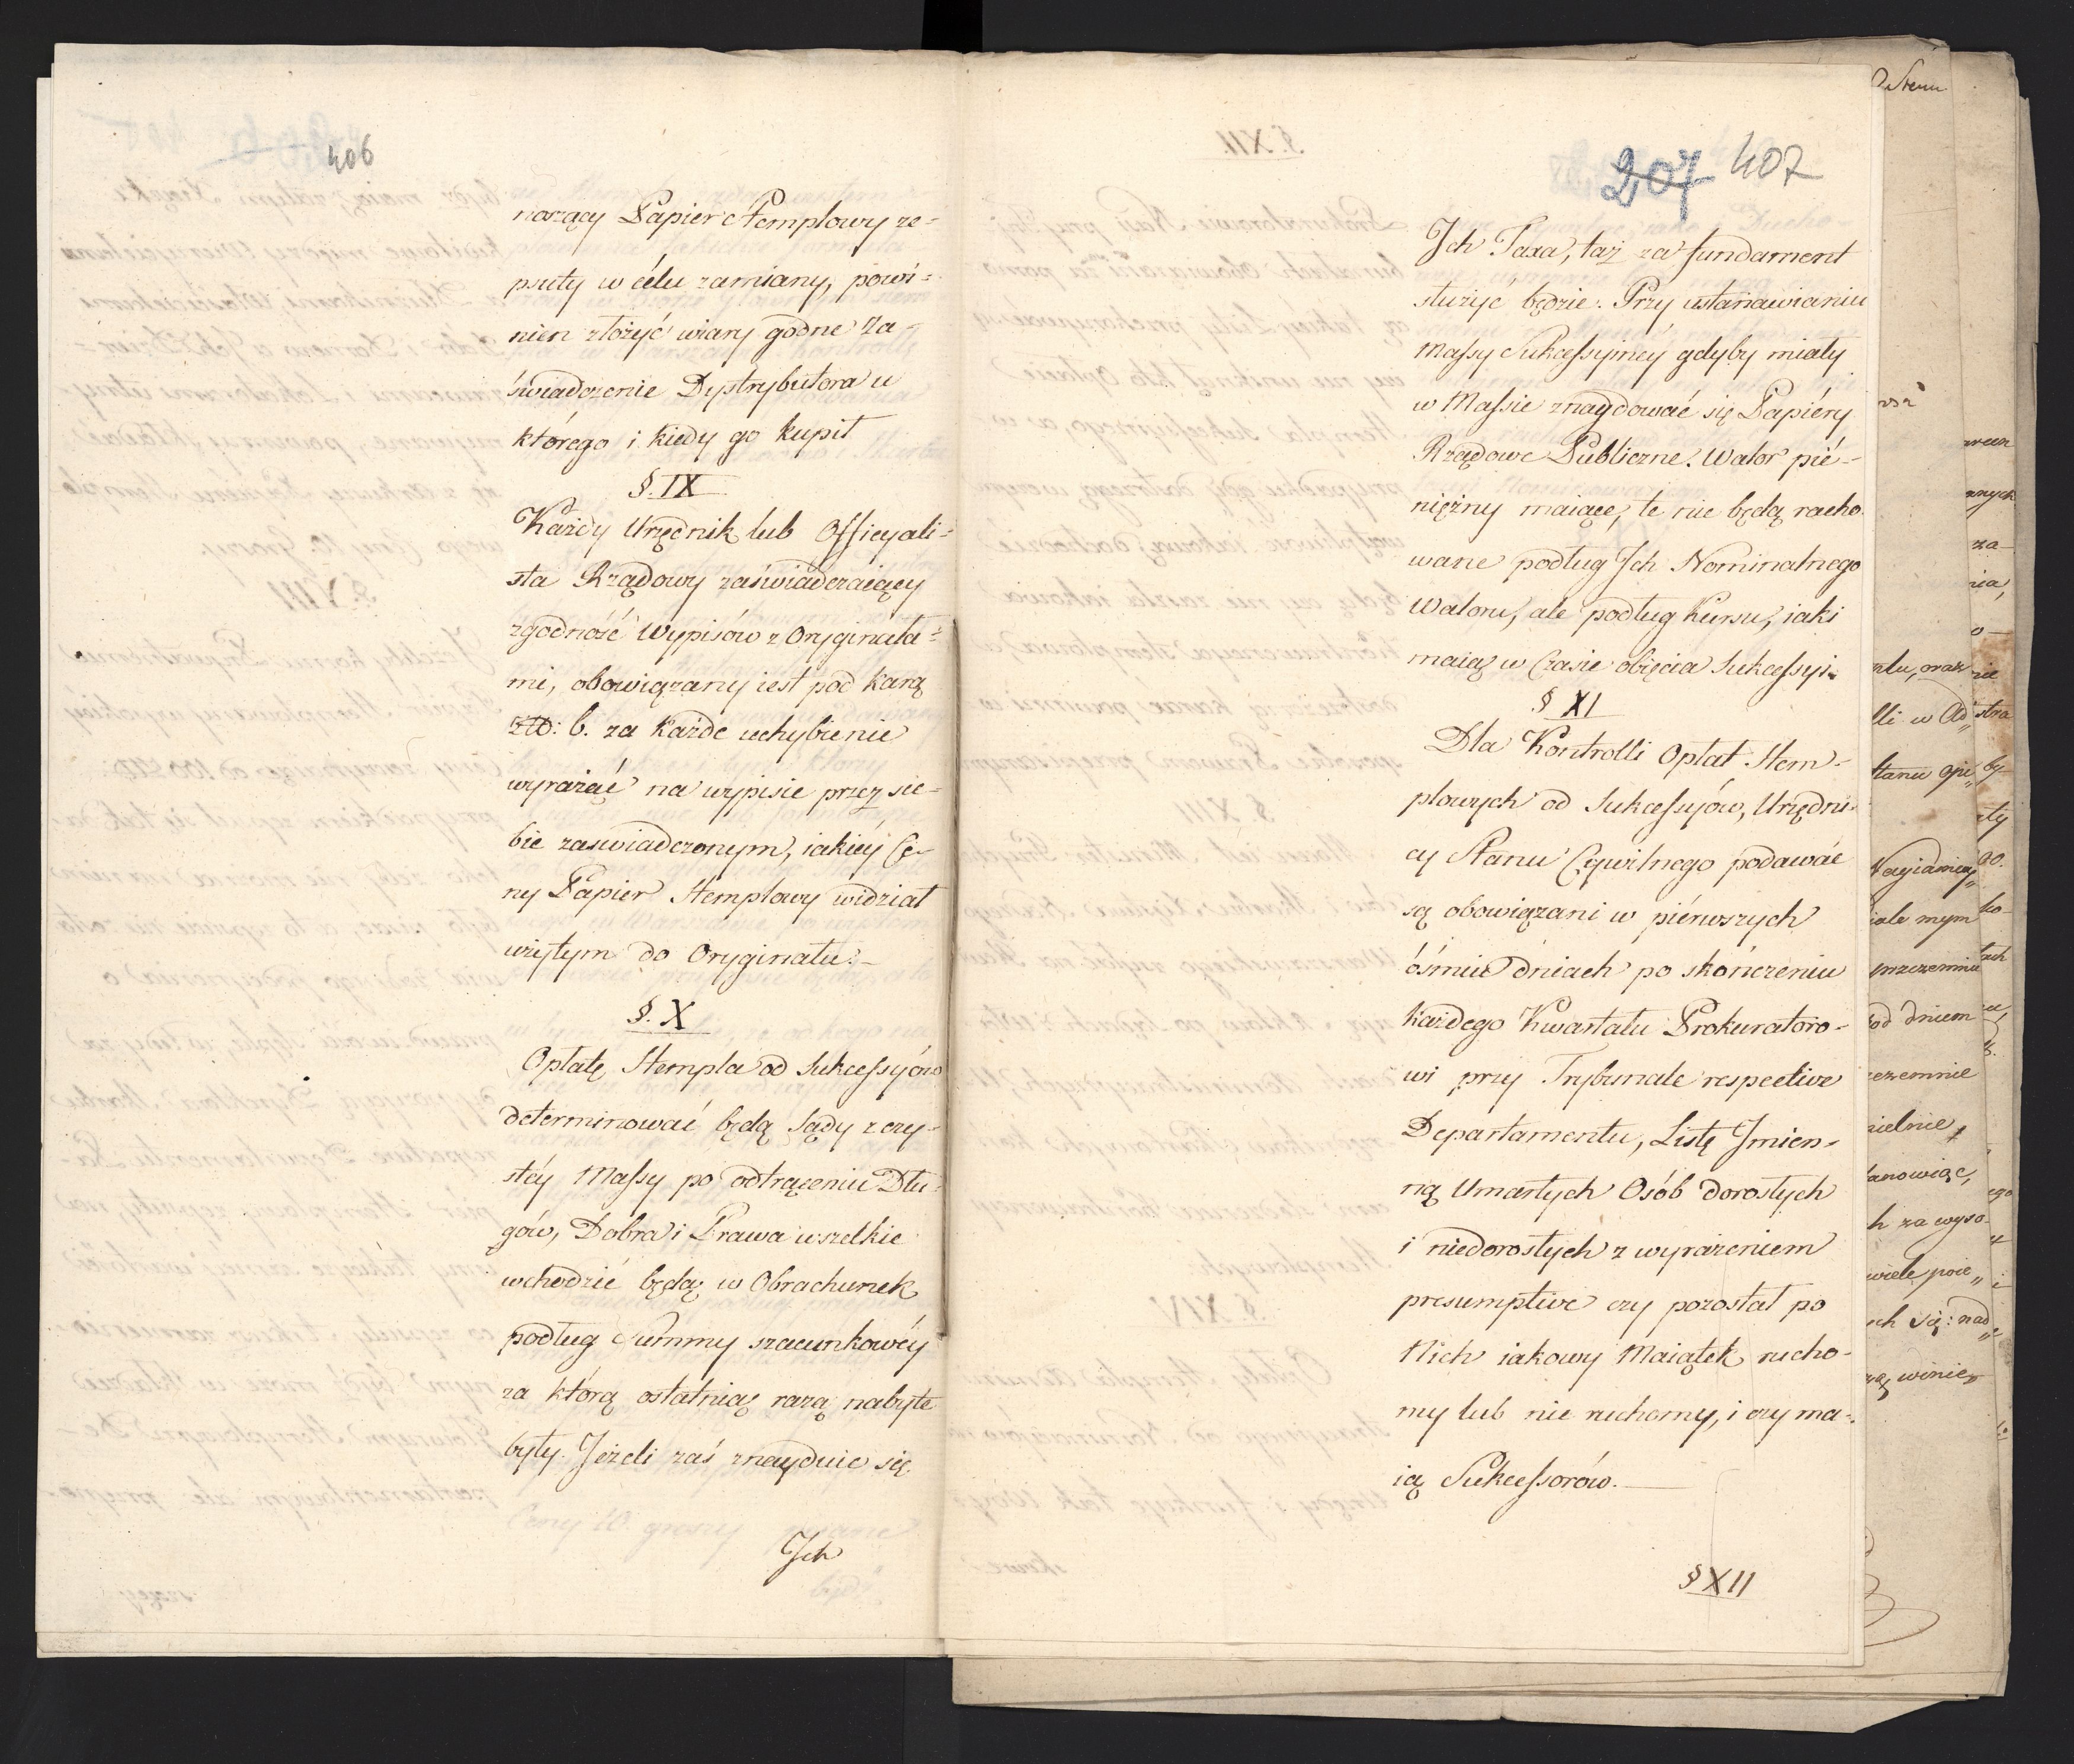 406
noszący Papier Stemplowy ze-
psuty w célu zamiany, powi-
nien złożyć wiary godne Za-
świadczenie Dystrybutora u
którego i kiedy go kupił
§. IX
Każdy Urzędnik lub Officyali-
sta Rządowy zaświadczaiący
zgodność Wypisów z Oryginała-
mi, obowiązany iest pod karą
złł: 6. za każde uchybienie
wyrażać na wypisie przez sie-
bie zaświadczonym, iakiéy Ce-
ny Papier Stemplowy widział
użytym do Oryginału.-
§. X
Opłatę Stempla od Sukcessyów
determinować będą Sądy z czy-
stéy Massy po odtrąceniu Dłu-
gów, Dobra i Prawa wszelkie
wchodzić będą w Obrachunek
podług Summy szacunkowéy
za którą ostatnią razą nabyte
były. Jeżeli zaś znayduie się
Ich
207 407
Ich Taxa, taż za fundament
służyć będzie. Przy ustanawianiu
Massy Sukcessyiney gdyby miały
w Massie znaydować się Papiéry
Rządowe Publiczne. Walor pié-
niężny maiące, te nie będą racho
wane podług Ich Nominalnego
Waloru, ale podług Kursu, iaki
maią w Czasie obięcia Sukcessyi.
§ XI
Dla Kontrolli Opłat Stem-
plowych od Sukcessyów, Urzędni-
cy Stanu Cywilnego podawać
są obowiązani w piérwszych
ośmiu dniach po skończeniu
każdego Kwartału Prokuratoro-
wi przy Trybunale respective
Departamentu, Listę Imien-
ną Umarłych Osób dorosłych
i niedorosłych z wyrażeniem
presumptive czy pozostał po
Nich iakowy Maiątek rucho-
my lub nie ruchomy, i czy ma-
ią Sukcessorów.
§ XII